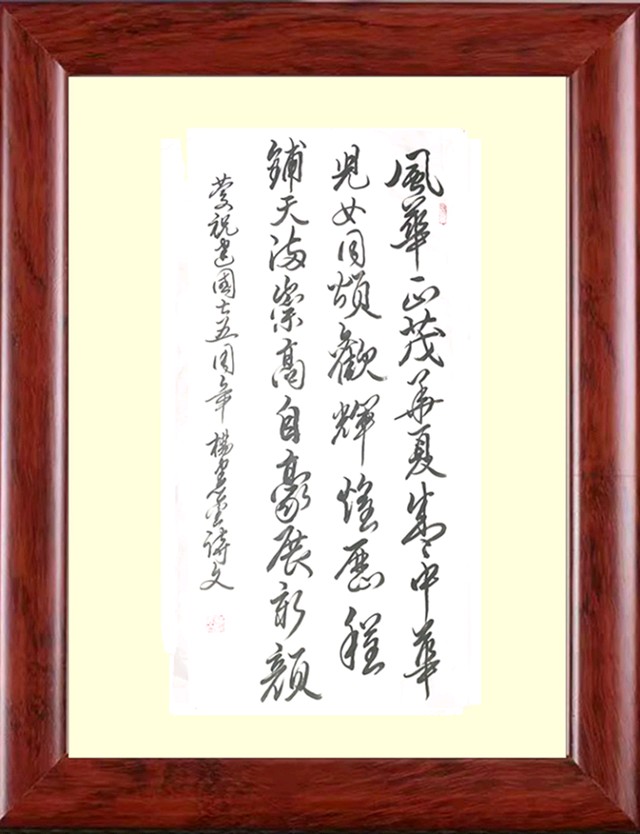 風華正茂華夏中華
兒女同頌歡輝煌歷程
鋪天崇高自豪展新顔
慶祝建國七十五周年 楊詩文